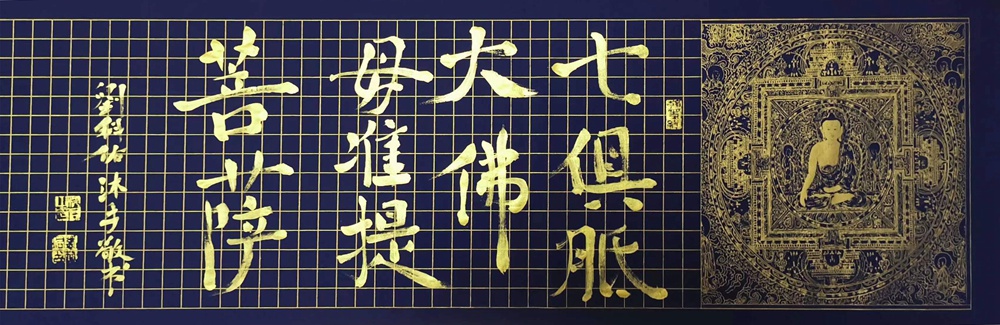 七俱胝
大佛
母准提
菩萨
劉科佑沐手敬书